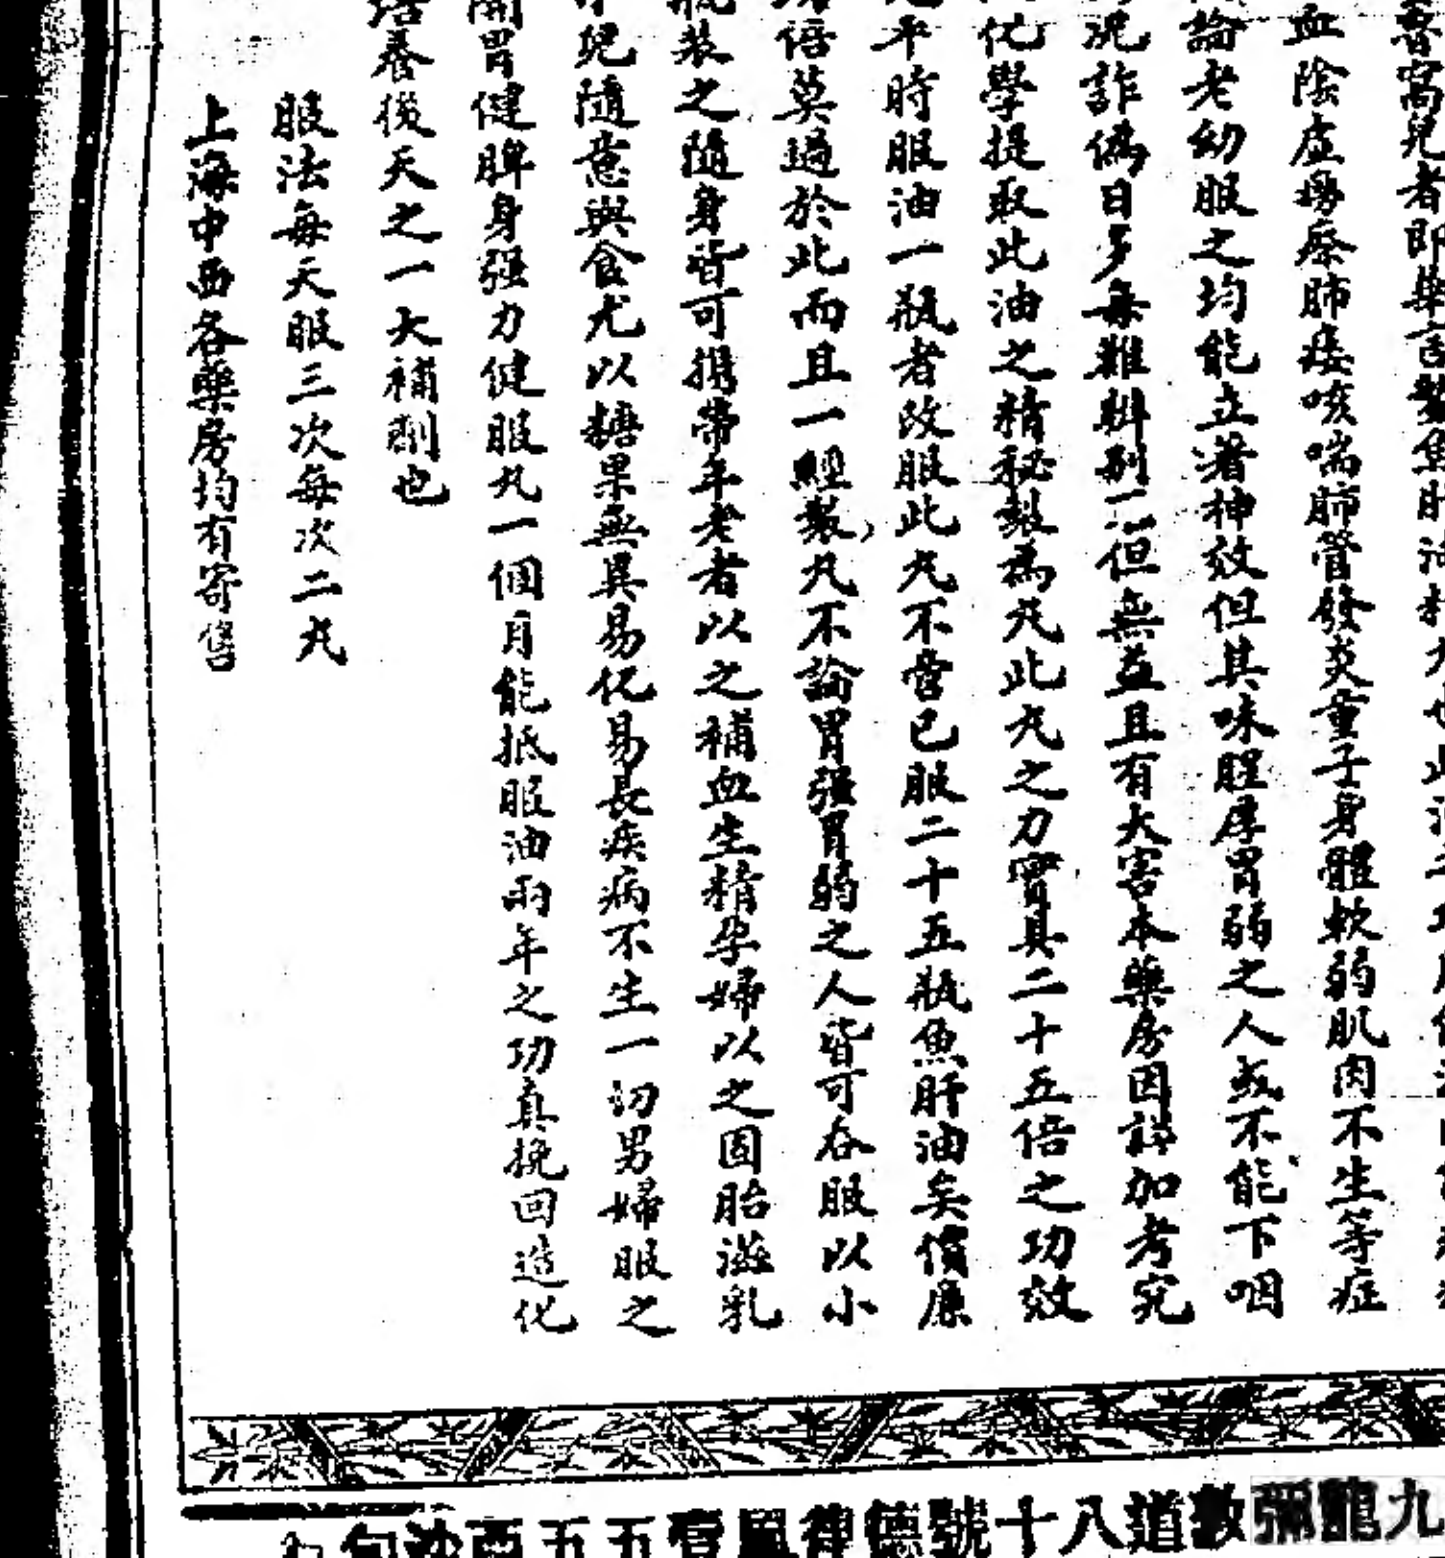 窩兒者即華言鱉魚肝油
血陰虛癆瘵肺痿咳喘肺管發炎童子身體軟弱肌肉不生等症
論老幼服之均能立著神效但其味腥厚胃弱之人或不能下咽
况詐偽日多每難辨别不但無益且有大害本藥房因詳加考究
化學提取此油之精秘製為丸此丸之力實具二十五倍之功效
平時服油一瓶者改服此丸不啻已服二十五瓶魚肝油矣價廉
倍莫過於此而且一經製丸不論胃强胃弱之人皆可吞服以小
瓶裝之隨身皆可携帶年老者以之補血生精孕婦以之固胎滋乳
兒隨意與食尤以糖果無異易化易長疾病不生一切男婦服之
開胃健脾身强力健服丸一個月能抵服油兩年之功真挽回造化
培養後天之一大補劑也
服法每天服三次每次二丸
上海中西各藥房均有寄售
九龍彌敦道八十號德律風壹五五西